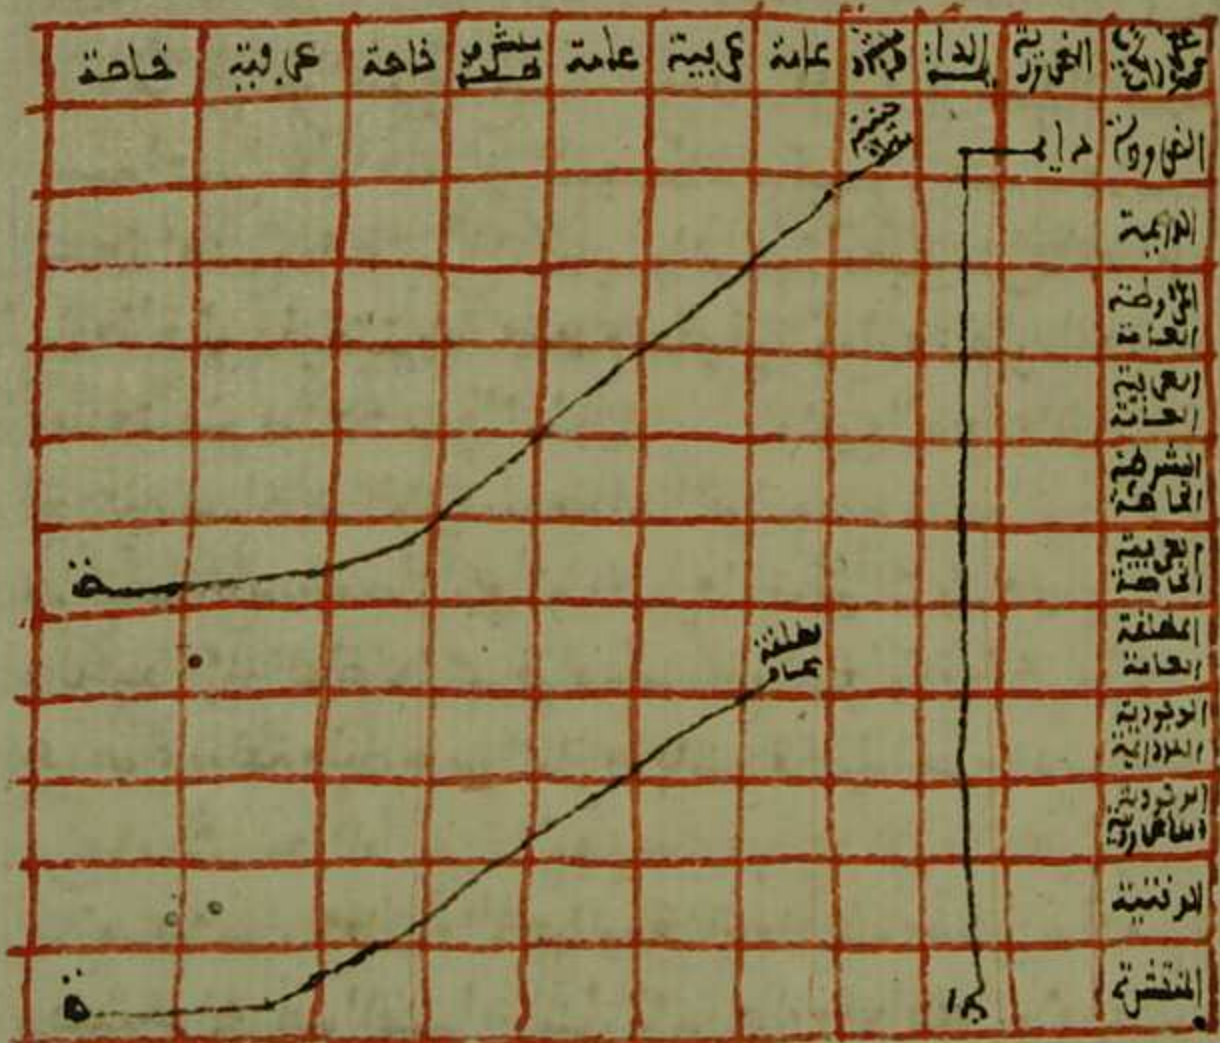 الضرورية الدايمة عامة عرفية عامة خاصة عرفية خاصة
الضرورية دا حينية
الدايمة
المشروطة
العامة
العرفية
العامة
المشروطة
الخاصة
العرفية
الخاصة
المطلقة مطلقة
العامة عامة
الوجودية
اللادايمة
الوجودية
اللاضرورية
الوقتية
المنتشرة